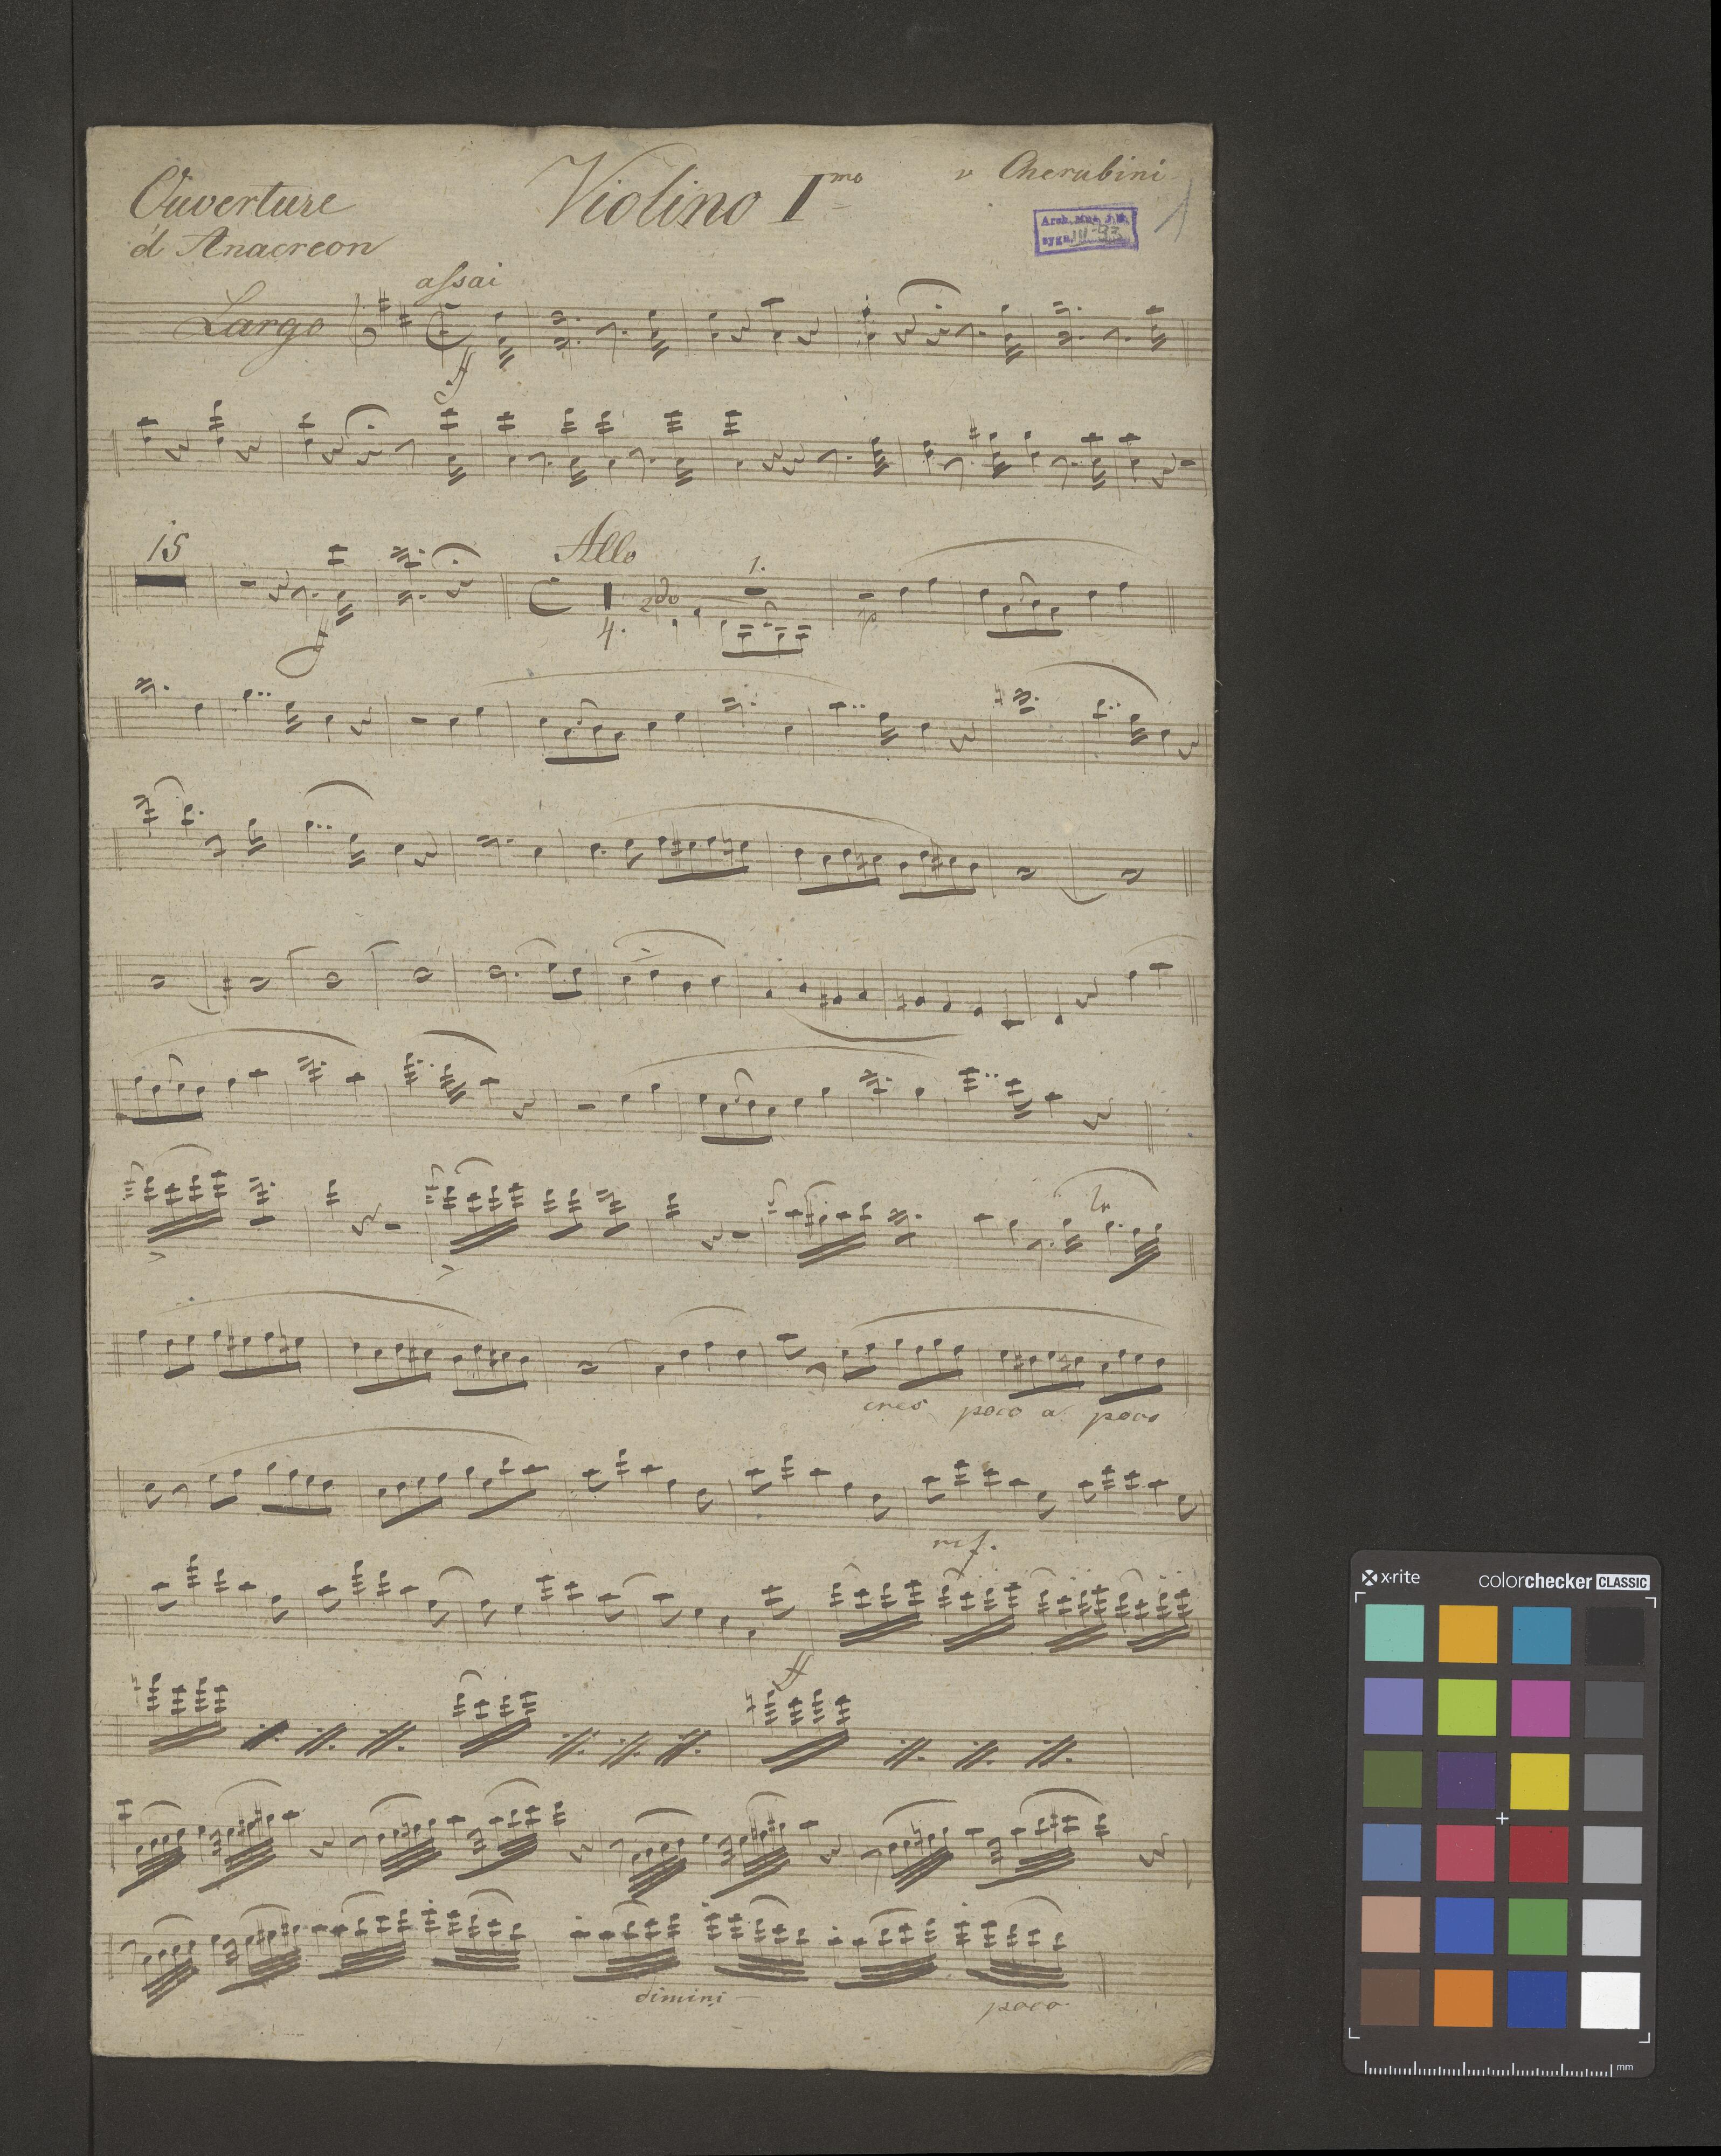 Ouverture
d'Anacreon
Violino Imo
v Cherubini
1
Arch. Mus. J. G.
sygn. III-93
Largo
assai
ff
15
f
Allo
4.
2do
1.
p
tr
cres poco a poco
rf.
ff
dimini
poco
x·rite
colorchecker CLASSIC
mm